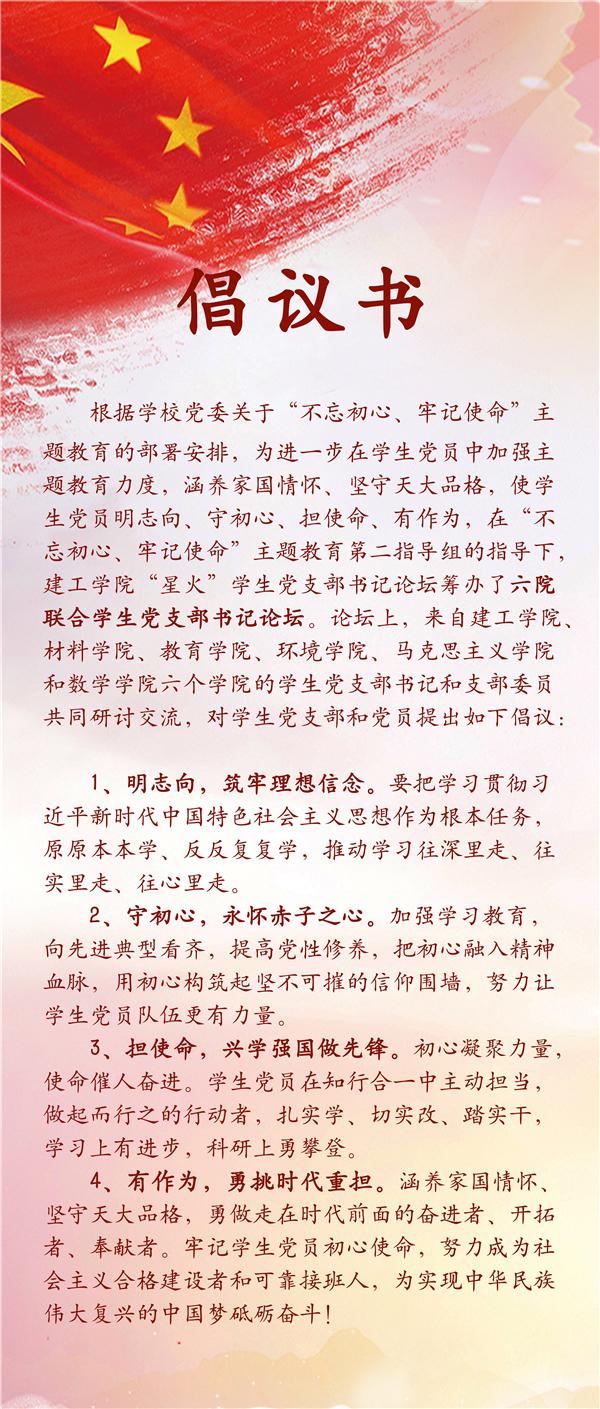 倡议书
根据学校党委关于“不忘初心、牢记使命”主
题教育的部署安排，为进一步在学生党员中加强主
题教育力度，涵养家国情怀、坚守天大品格，使学
生党员明志向、守初心、担使命、有作为，在“不
忘初心、牢记使命”主题教育第二指导组的指导下，
建工学院“星火”学生党支部书记论坛筹办了六院
联合学生党支部书记论坛。论坛上，来自建工学院、
材料学院、教育学院、环境学院、马克思主义学院
和数学学院六个学院的学生党支部书记和支部委员
共同研讨交流，对学生党支部和党员提出如下倡议：
1、明志向，筑牢理想信念。要把学习贯彻习
近平新时代中国特色社会主义思想作为根本任务，
原原本本学、反反复复学，推动学习往深里走、往
实里走、往心里走。
2、守初心，永怀赤子之心。加强学习教育，
向先进典型看齐，提高党性修养，把初心融入精神
血脉，用初心构筑起坚不可摧的信仰围墙，努力让
学生党员队伍更有力量。
3、担使命，兴学强国做先锋。初心凝聚力量，
使命催人奋进。学生党员在知行合一中主动担当，
做起而行之的行动者，扎实学、切实改、踏实干，
学习上有进步，科研上勇攀登。
4、有作为，勇挑时代重担。涵养家国情怀、
坚守天大品格，勇做走在时代前面的奋进者、开拓
者、奉献者。牢记学生党员初心使命，努力成为社
会主义合格建设者和可靠接班人，为实现中华民族
伟大复兴的中国梦砥砺奋斗！